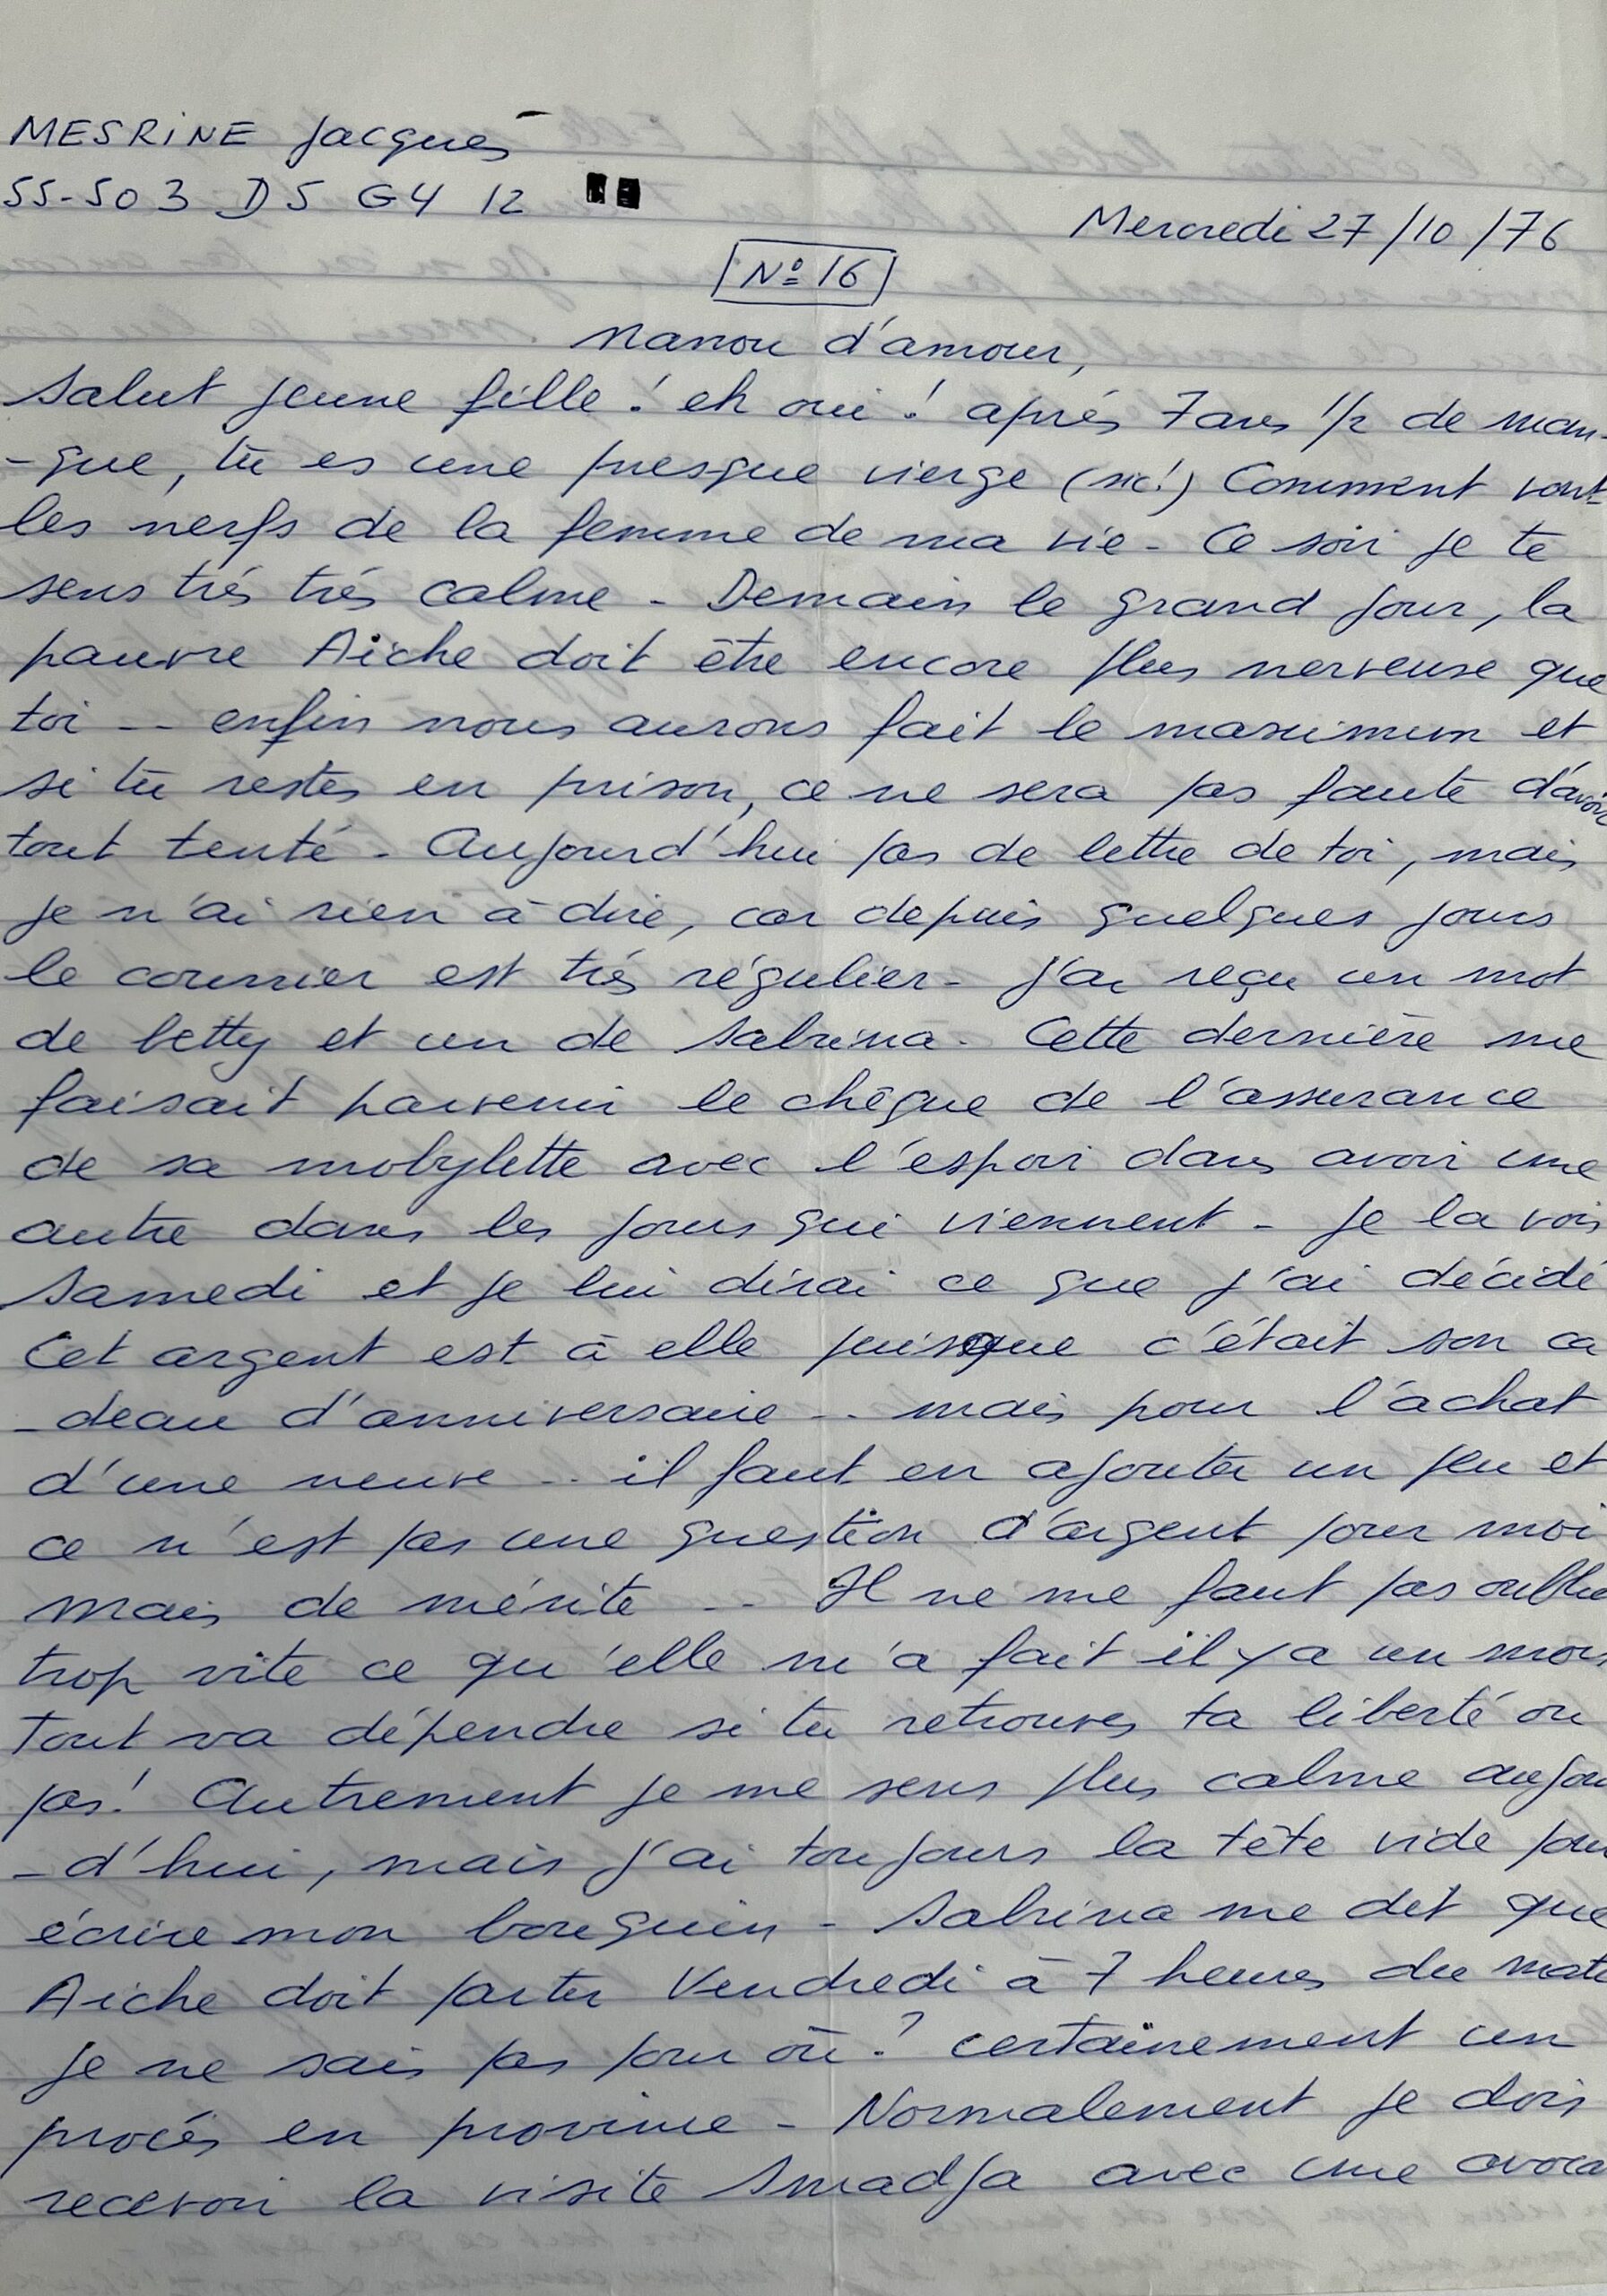 MESRINE Jacques
55-503 D5 G4 12
Mercredi 27/10/76
N° 16
Nanou d'amour,
Salut jeune fille ! eh oui ! aprés 7 ans 1/2 de man-
-que, tu es une presque vierge (sic!) Comment vont
les nerfs de la femme de ma vie - Ce soir je te
sens trés trés calme - Demain le grand jour, la
pauvre Aiche doit être encore plus nerveuse que
toi -- enfin nous aurons fait le maximum et
si tu restes en prison, ce ne sera pas faute d'avoir
tout tenté - Aujourd'hui pas de lettre de toi, mais
je n'ai rien à dire, car depuis quelques jours
le courrier est trés régulier - J'ai reçu un mot
de betty et un de Sabrina - Cette dernière me
faisait parvenir le chèque de l'assurance
de sa mobylette avec l'espoir dans avoir une
autre dans les jours qui viennent - Je la vois
Samedi et je lui dirai ce que j'ai décidé
Cet argent est à elle puisque c'était son ca
-deau d'anniversaire -- mais pour l'achat
d'une neuve -- il faut en ajouter un peu et
ce n'est pas une question d'argent pour moi
mais de mérite -- Il ne me faut pas oublie
trop vite ce qu'elle m'a fait il y a un mois
Tout va dépendre si tu retrouves ta liberté ou
pas ! Autrement je me sens plus calme aujou
-d'hui, mais j'ai toujours la tête vide pou
écrire mon bouquin - Sabrina me dit que
Aiche doit partir Vendredi à 7 heures du mati
je ne sais pas pour où ? certainement un
procés en province - Normalement je dois
recevoir la visite Smadja avec une avoca